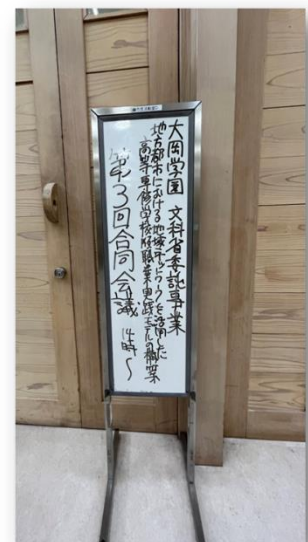 大岡学園 文科省委託事業
地方都市における地域ネットワークを活用した
高等専修学校版職業実践モデルの構築
第3回合同会議 14時～